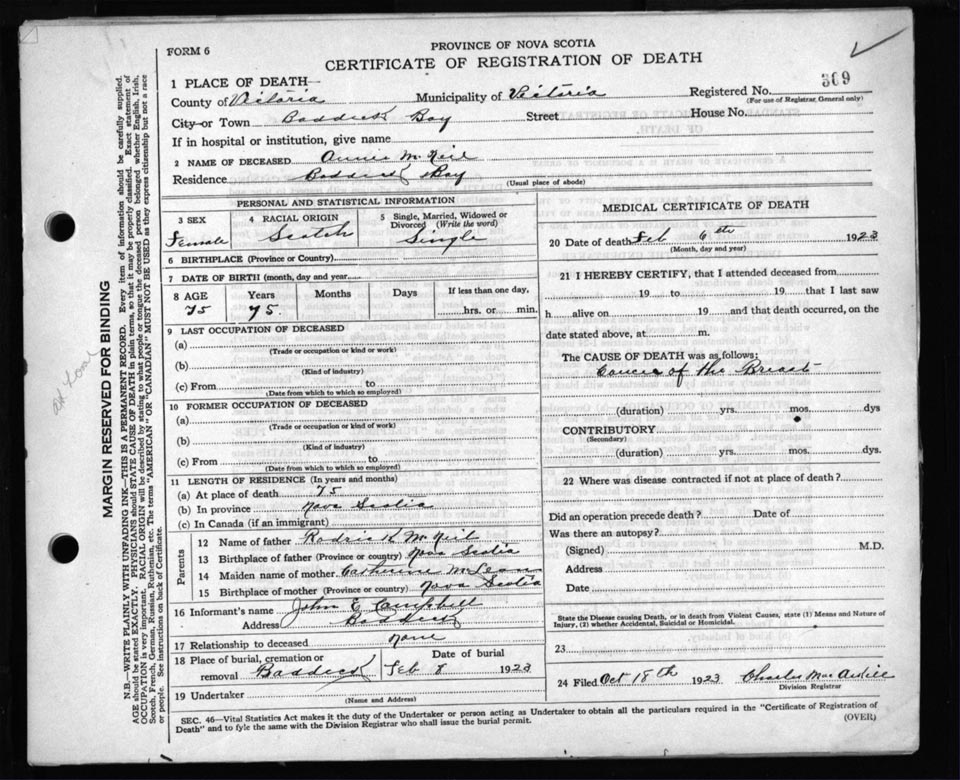 FORM 6
PROVINCE OF NOVA SCOTIA
CERTIFICATE OF REGISTRATION OF DEATH
309
1 PLACE OF DEATH
County of Victoria Municipality of Victoria Registered No.
(For use of Registrar General only)
City or Town Baddeck Bay Street House No.
If in hospital or institution, give name
2 NAME OF DECEASED Annie McNeil
Residence Baddeck Bay
(Usual place of abode)
PERSONAL AND STATISTICAL INFORMATION
3 SEX 4 RACIAL ORIGIN 5 Single, Married, Widowed or Divorced (Write the word)
Female Scotch Single
6 BIRTHPLACE (Province or Country)
7 DATE OF BIRTH (month, day and year)
8 AGE Years Months Days If less than one day,
75 75. hrs. or min.
9 LAST OCCUPATION OF DECEASED
(a)
(Trade or occupation or kind or work)
(b)
(Kind of industry)
(c) From to
(Date from which to which so employed)
10 FORMER OCCUPATION OF DECEASED
(a)
(Trade or occupation or kind of work)
(b)
(Kind of industry)
(c) From to
(Date from which to which so employed)
11 LENGTH OF RESIDENCE (In years and months)
(a) At place of death 75
(b) In province Nova Scotia
(c) In Canada (if an immigrant)
Parents
12 Name of father Rodrick McNeil
13 Birthplace of father (Province or country) Nova Scotia
14 Maiden name of mother Catherine McLean
15 Birthplace of mother (Province or country) Nova Scotia
16 Informant's name John E Campbell
Address Baddeck
17 Relationship to deceased none
18 Place of burial, cremation or Date of burial
removal Baddeck Feb 8 1923
19 Undertaker
(Name and Address)
MEDICAL CERTIFICATE OF DEATH
20 Date of death Feb 6th 1923
(Month, day and year)
21 I HEREBY CERTIFY, that I attended deceased from
19 to 19 that I last saw
h alive on 19 and that death occurred, on the
date stated above, at m.
The CAUSE OF DEATH was as follows:
Cancer of the Breast
(duration) yrs. mos. dys
CONTRIBUTORY
(Secondary)
(duration) yrs. mos. dys.
22 Where was disease contracted if not at place of death?
Did an operation precede death? Date of
Was there an autopsy?
(Signed) M.D.
Address
Date
State the Disease causing Death, or in death from Violent Causes, state (1) Means and Nature of
Injury, (2) whether Accidental, Suicidal or Homicidal.
23
24 Filed Oct 18th 1923 Charles
Division Registrar
SEC. 46—Vital Statistics Act makes it the duty of the Undertaker or person acting as Undertaker to obtain all the particulars required in the "Certificate of Registration of
Death" and to fyle the same with the Division Registrar who shall issue the burial permit.
(OVER)
MARGIN RESERVED FOR BINDING
N.B.—WRITE PLAINLY WITH UNFADING INK—THIS IS A PERMANENT RECORD. Every item of information should be carefully supplied.
AGE should be stated EXACTLY. PHYSICIANS should STATE CAUSE OF DEATH in plain terms, so that it may be properly classified. Exact statement of
OCCUPATION is very important. RACIAL ORIGIN will be described by stating to what people or tongue the deceased person belonged whether English, Irish,
Scotch, French, German, Russian, Ruthenian, etc. The terms "AMERICAN" OR "CANADIAN" MUST NOT BE USED as they express citizenship but not a race
or people. See instructions on back of Certificate.